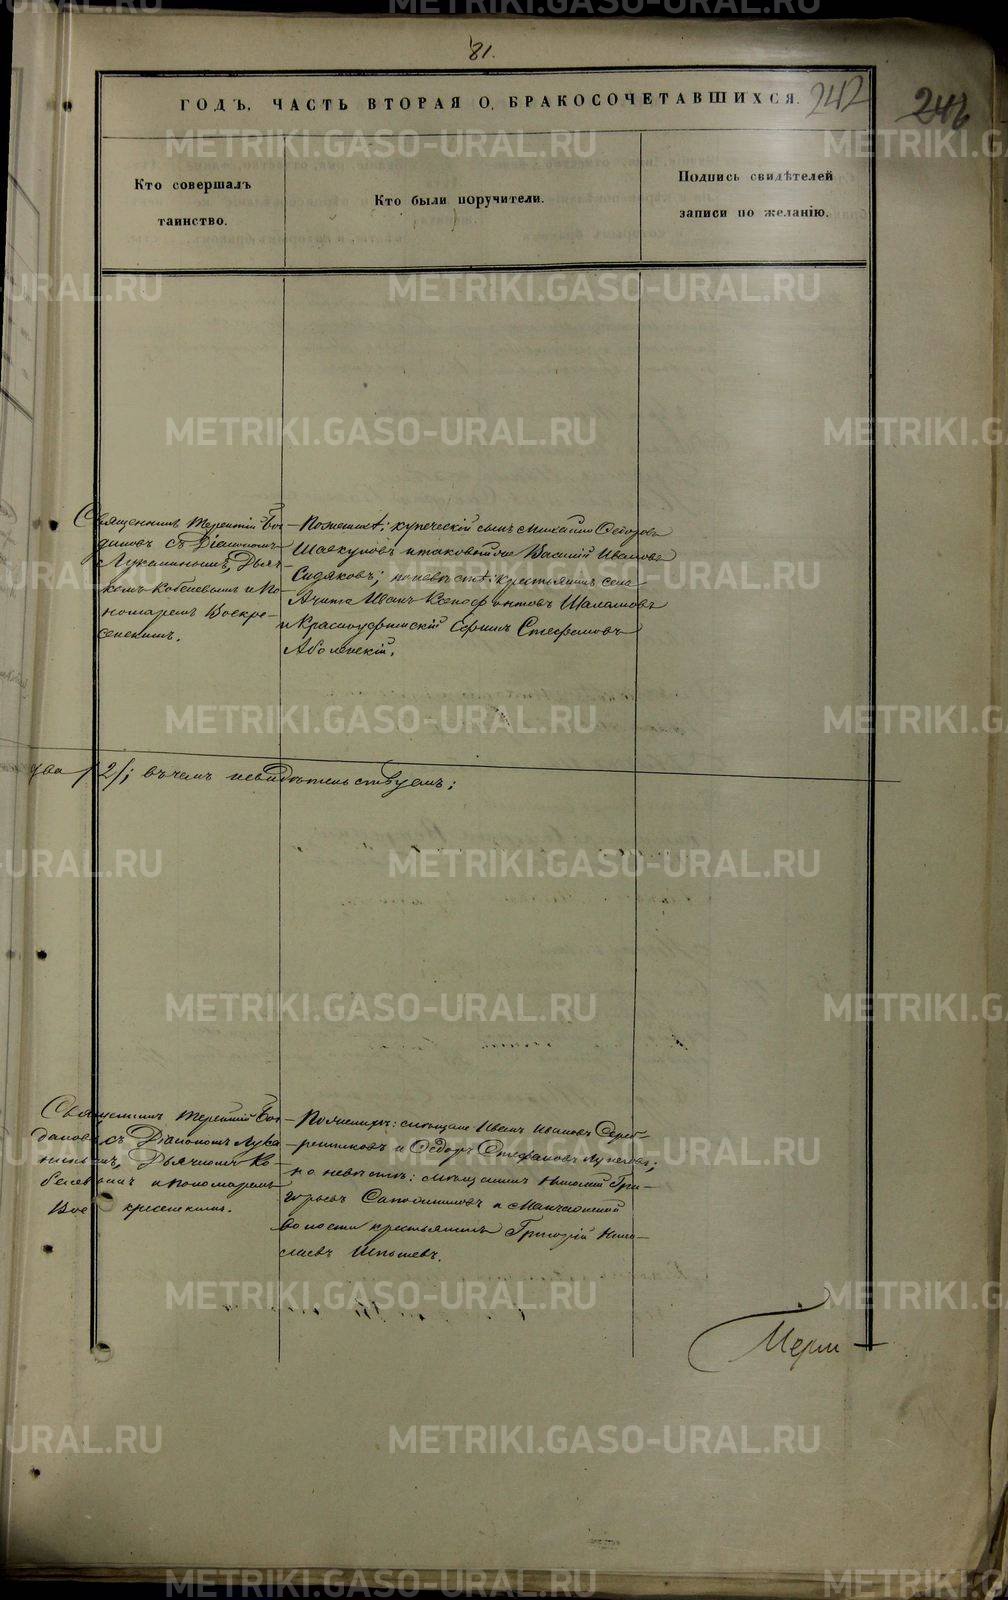 81.
ГОДЪ, ЧАСТЬ ВТОРАЯ О, БРАКОСОЧЕТАВШИХСЯ.
242
246
Кто совершалъ
таинство.
Кто были поручители.
Подпись свидѣтелей
записи по желанію.
Священникъ Терентій Бог-
дановъ съ Діакономъ
Луканинымъ, Дьяч-
комъ Кобелевымъ и По-
номаремъ Воскре-
сенскимъ.
По женихѣ; купеческій сынъ Михаило Ѳедоровъ
и таковой же Василій Ивановъ
Сидяковъ; по невѣстѣ: крестьянинъ села
Ачита Иванъ Ксенофонтовъ Шаламовъ
и Красноуфимскій Стефановъ
два /2/; въ чемъ и свидѣтельствуемъ:
Священникъ Терентій Бог-
дановъ съ Діакономъ Лука-
нинымъ, Дьячкомъ Ко-
белевымъ и пономаремъ
Воскресенскимъ.
По женихѣ: мѣщане Иванъ Ивановъ Сереб-
ренниковъ и Ѳедоръ Стефановъ
по невѣстѣ: мѣщанинъ Николай Гри-
горьевъ Сапожниковъ и Манчажской
волости крестьянинъ Григорій Нико-
лаевъ
METRIKI.GASO-URAL.RU